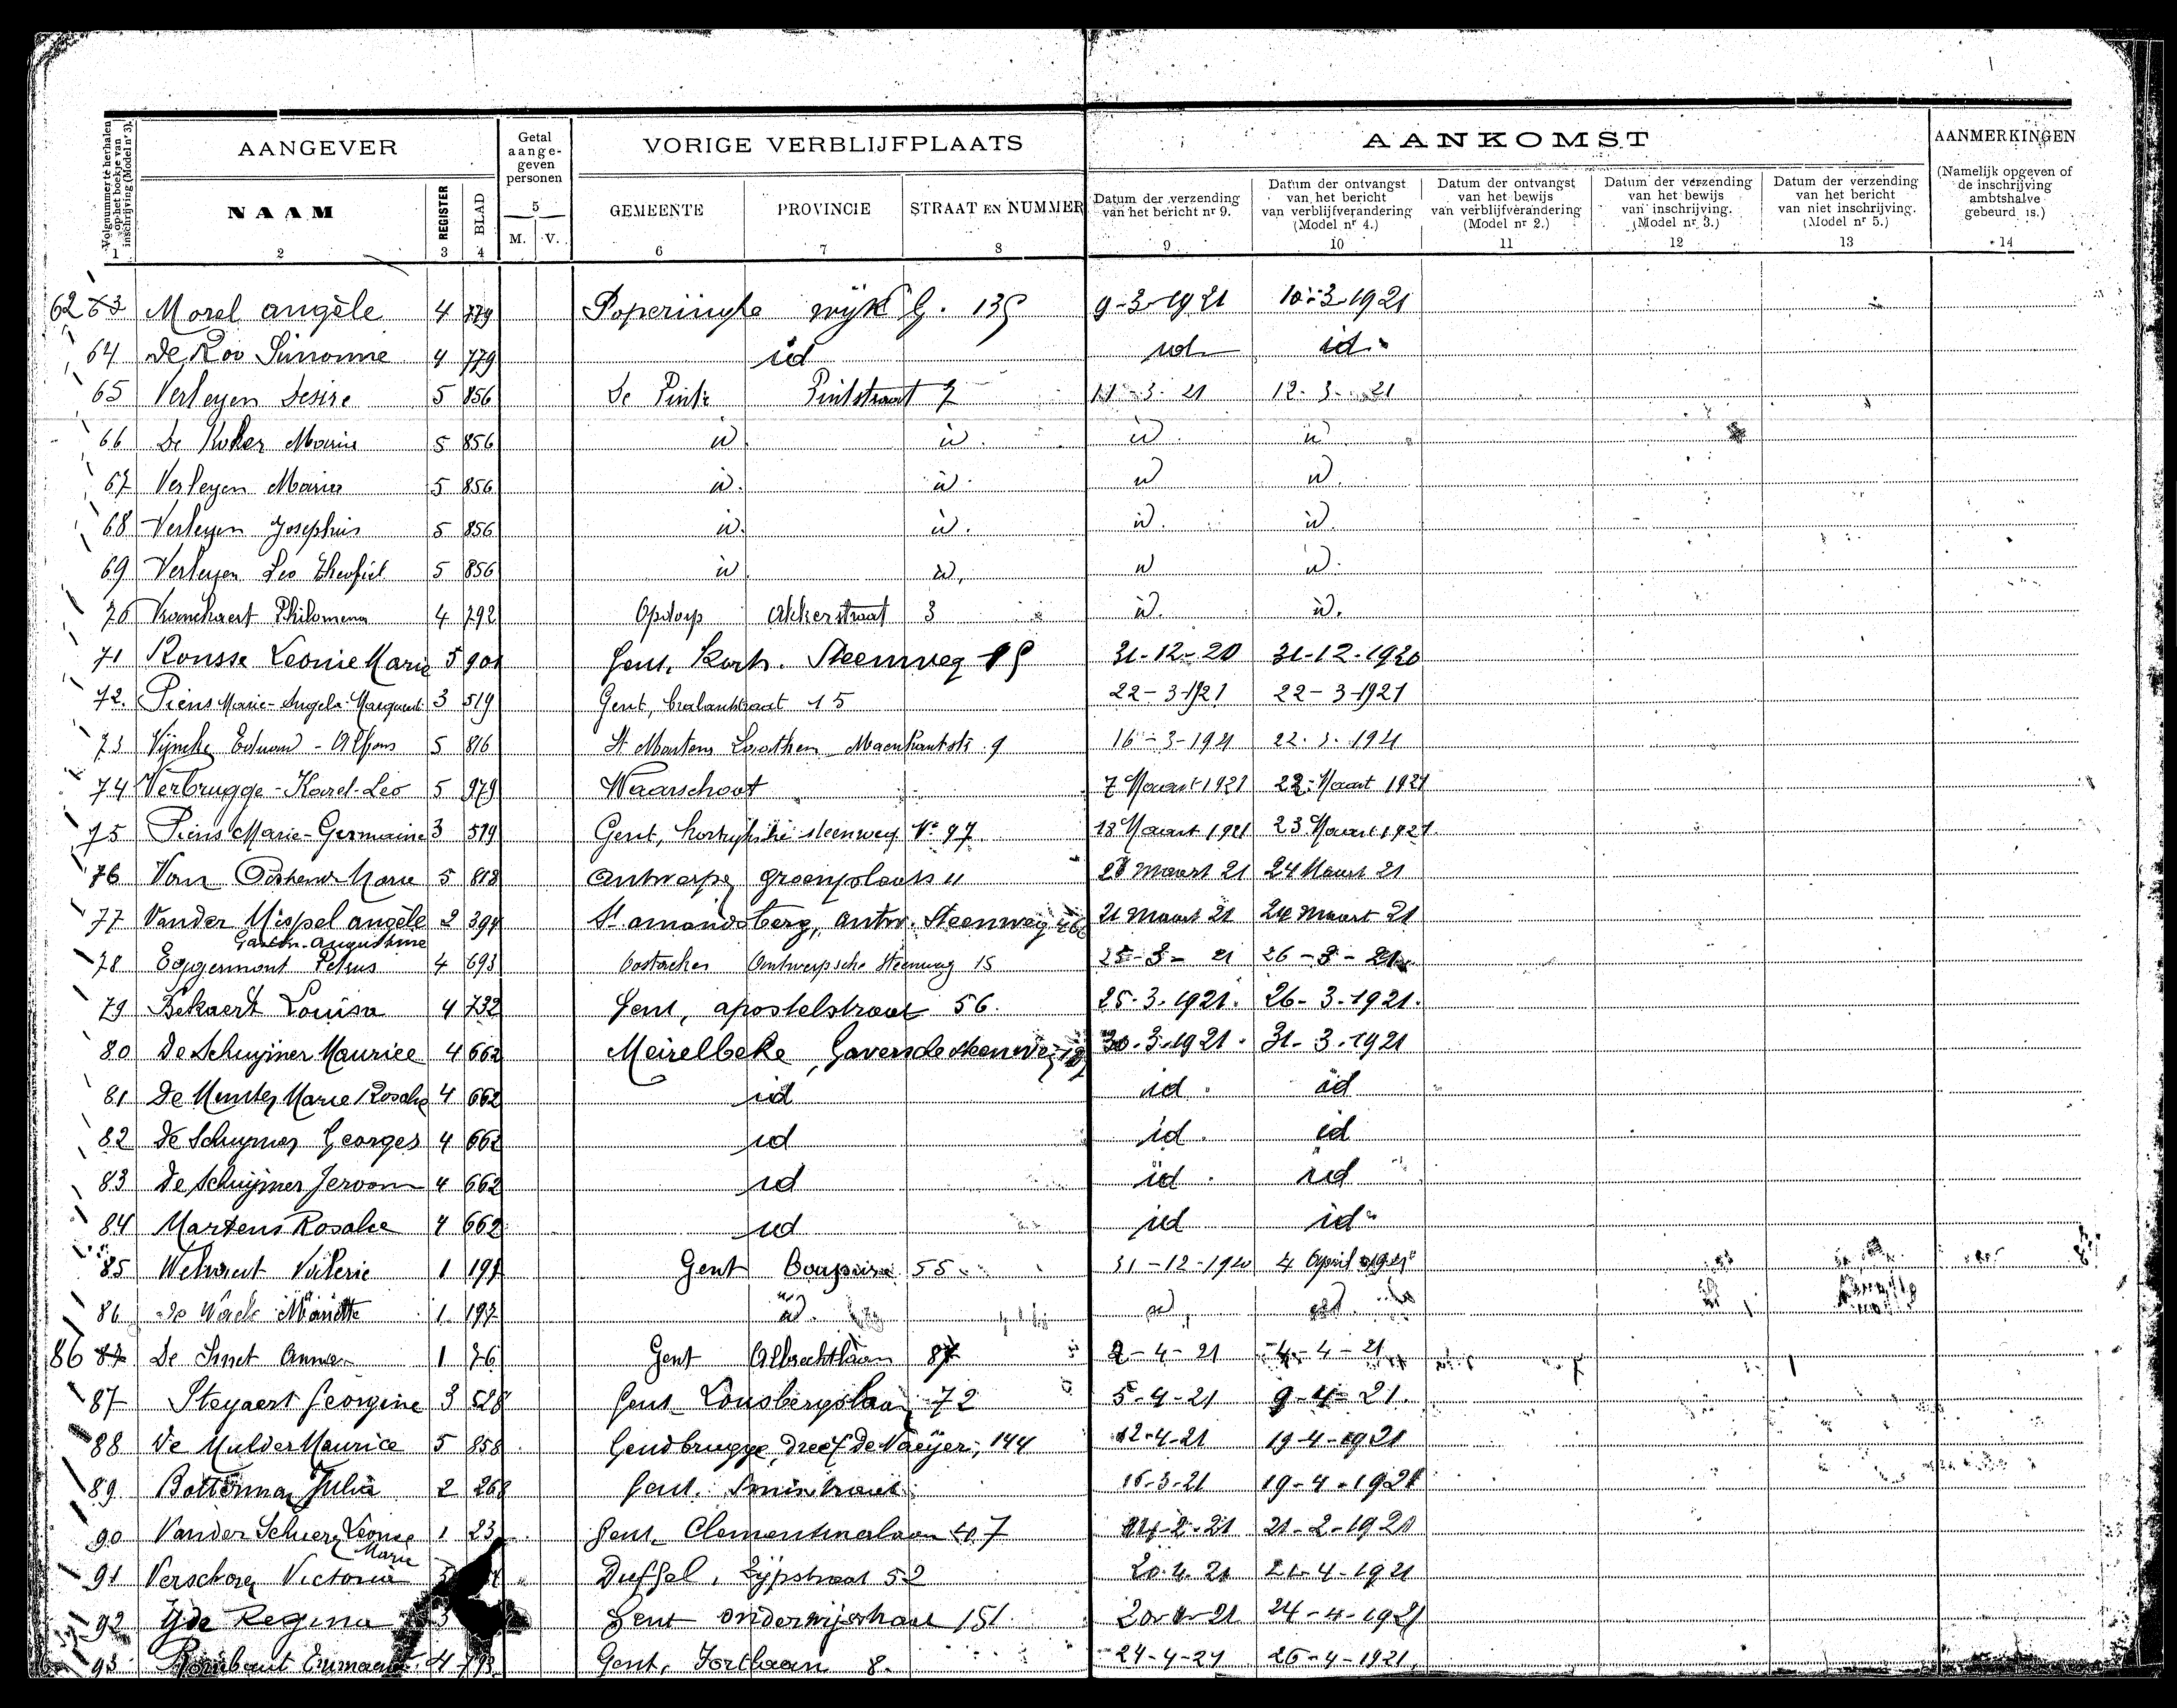 Volgnummer te herhalen op het boekje van inschrijving (Model nr 3).
AANGEVER
Getal aange-geven personen
VORIGE VERBLIJFPLAATS
AANKOMST
AANMERKINGEN
(Namelijk opgeven of de inschrijving ambtshalve gebeurd is.)
NAAM
REGISTER
BLAD
5
M. V.
GEMEENTE
PROVINCIE
STRAAT EN NUMMER
Datum der verzending van het bericht nr 9.
Datum der ontvangst van het bericht van verblijfverandering (Model nr 4.)
Datum der ontvangst van het bewijs van verblijfverandering (Model nr 2.)
Datum der verzending van het bewijs van inschrijving. (Model nr 3.)
Datum der verzending van het bericht van niet inschrijving. (Model nr 5.)
1 2 3 4 6 7 8 9 10 11 12 13 14
62 63 Morel angèle 4 779 Poperinghe wijk G. 139 9-3-1921 10-3-1921
64 De Roo Simonne 4 779 id id id
65 Verleyen Desire 5 856 De Pinte Pintstraat 7 11-3-21 12-3-21
66 De Maria 5 856 id id id id
67 Verleyen Maria 5 856 id id id id
68 Verleyen Josephus 5 856 id id id id
69 Verleyen Leo Theofiel 5 856 id id id id
70 Philomena 4 792 Opdorp Akkerstraat 3 id id
71 Rousse Leonie Marie 5 901 Gent, Kortr. Steenweg 31-12-20 31-12-1920
72. Piens Marie-Angela-Margueri 3 519 Gent, 15 22-3-1921 22-3-1921
73 Vyncke Eduard-Alfons 5 816 St Martens Laathem 9 16-3-1921 22-3-1921
74 Verbrugge-Karel-Leo 5 979 Waarschoot 7 Maart 1921 22 Maart 1921
75 Piens Marie-Germaine 3 519 Gent, Kortrijksche steenweg No 97 18 Maart 1921 23 Maart 1921
76 Van Marie 5 818 Antwerpen groenplaats 11 Maart 21 24 Maart 21
77 Vander Mispel angèle 2 394 St amandsberg, antw. Steenweg 21 Maart 21 24 Maart 21
Gaston-Augustine
78 Eggermont Petrus 4 693 Oostacker Antwerpsche Steenweg 15 25-3-21 26-3-21
79 Bekaert Louisa 4 732 Gent, apostelstraat 56. 25-3-1921. 26-3-1921.
80 De Schuymer Maurice 4 662 Meirelbeke, Gaversche steenweg 30-3-1921. 31-3-1921
81 De Munter Marie Rosalie 4 662 id id id
82 De Schuymer Georges 4 662 id id id
83 De Schuymer Jeroom 4 662 id id id
84 Martens Rosalie 4 662 id id id
85 Valerie 1 197 Gent Coupure 55 31-12-1920 4 April 1921
86 Mariette 1 197 id id id
86 87 De Smet Anna 1 76 Gent Albrechtlaan 87 2-4-21 4-4-21
87 Steyaert Georgine 3 528 Gent Lousbergslaan, 72 5-4-21 9-4-21.
88 De Mulder Maurice 5 858 Gendbrugge, Dreef De Naeyer, 144 12-4-21 19-4-1921
89 Botterman Julia 2 268 Gent. 16-3-21 19-4-1921
90 Vander Schueren Leonie 1 23 Gent, Clementinalaan 2-21 21-2-1921
Marie
91 Victoria Duffel, Lijpstraat 52 20-4-21 21-4-1921
92 Regina 3 Gent onderwijsstraat 151 20-4-21 24-4-1921
93 Rombaut 4 793 Gent, Fortlaan 8. 24-4-21 26-4-1921.